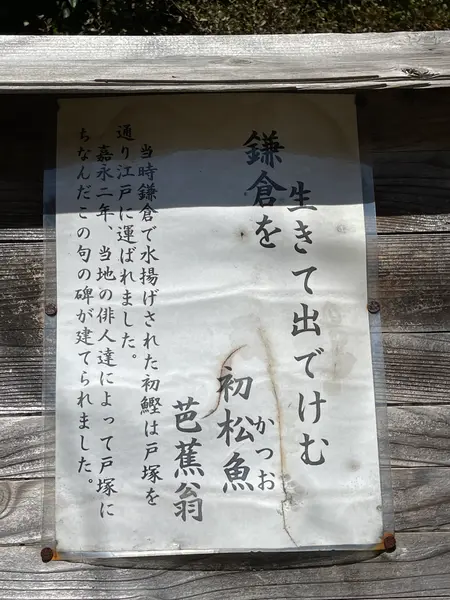 鎌倉を
生きて出でけむ
初松魚
かつお
芭蕉翁
当時鎌倉で水揚げされた初鰹は戸塚を
通り江戸に運ばれました。
嘉永二年、当地の俳人達によって戸塚に
ちなんだこの句の碑が建てられました。